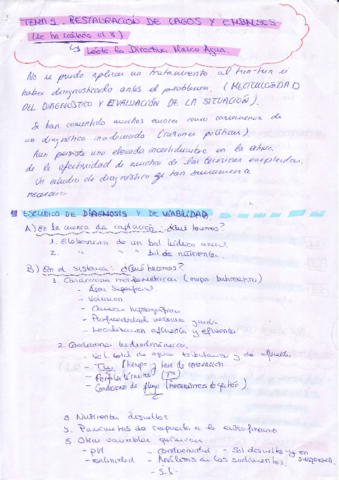 TEMA 1. RESTAURACIÓN DE LAGOS Y EMBALSES
Leete la Directiva Marco Agua.
No se puede aplicar un tratamiento al tun-tun si
haber diagnosticado antes el problema. (NECESIDAD
DEL DIAGNÓSTICO Y EVALUACIÓN DE LA SITUACIÓN).
Se han cometido muchos errores como consecuencia de
un diagnóstico inadecuado (razones políticas)
Aun persiste una elevada incertidumbre en la
de la efectividad de muchas de las técnicas empleadas.
Un estudio de diagnóstico es sumamente
necesario
ESTUDIOS DE DIAGNOSIS Y DE VIABILIDAD
A) En la cuenca de captación ¿Qué hacemos?
1. Elaboración de un bal hídrico anual
2. " " " bal de nutrientes.
B) En el sistema: ¿Qué hacemos?
1. Condiciones morfométricas (mapa batimétrico)
- Área superficial
- Volumen
- Curva hipsográfica
- Profundidad máxima y
- Localización afluentes y efluentes
2. Condiciones hidrodinámicas
- Vol. total de agua tributarios y de
- Tiempo y tasa de renovación
- Perfiles térmicos (Tª)
- Condiciones de flujo (mecanismos de gestión).
3. Nutrientes disueltos
4. Parámetros de respuesta a la eutrofización
5. Otras variables químicas
- pH - conductividad - Sol disueltos y en suspensión
- salinidad - Análisis en los sedimentos.